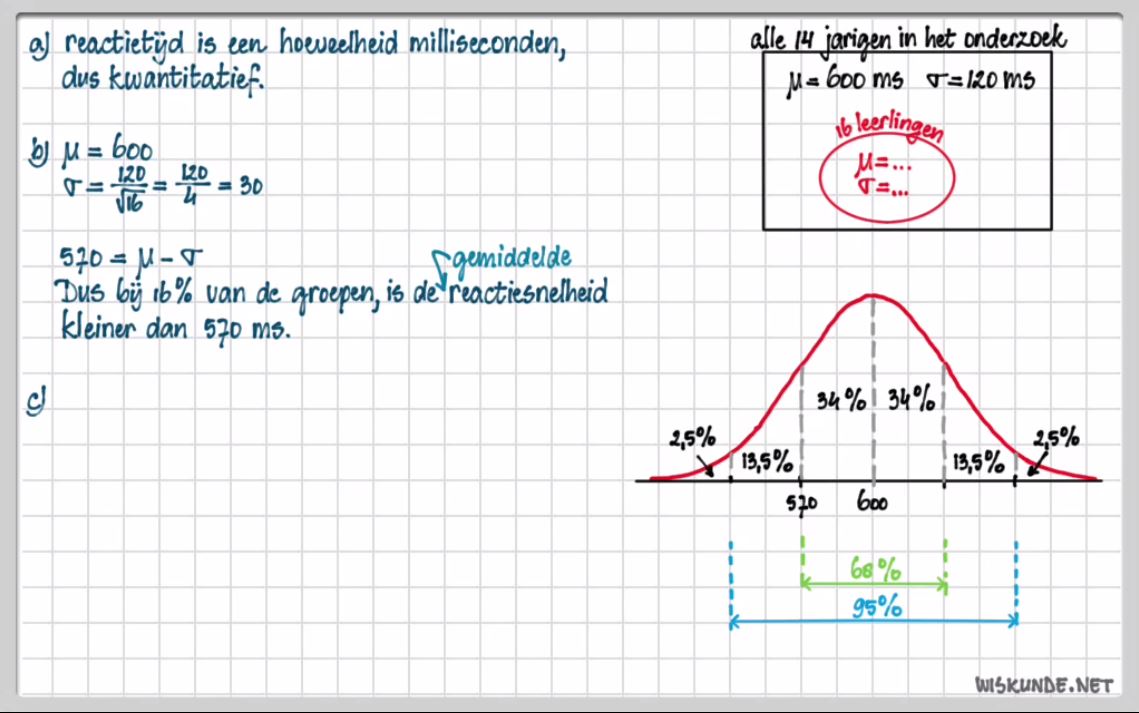 a) reactietijd is een hoeveelheid milliseconden,
dus kwantitatief.
b) μ = 600
σ = 120/√16 = 120/4 = 30
570 = μ - σ
gemiddelde
Dus bij 16% van de groepen, is de reactiesnelheid
kleiner dan 570 ms.
c)
alle 14 jarigen in het onderzoek
μ = 600 ms σ = 120 ms
16 leerlingen
μ = ...
σ = ...
34% 34%
2,5% 2,5%
13,5% 13,5%
570 600
68%
95%
WISKUNDE.NET